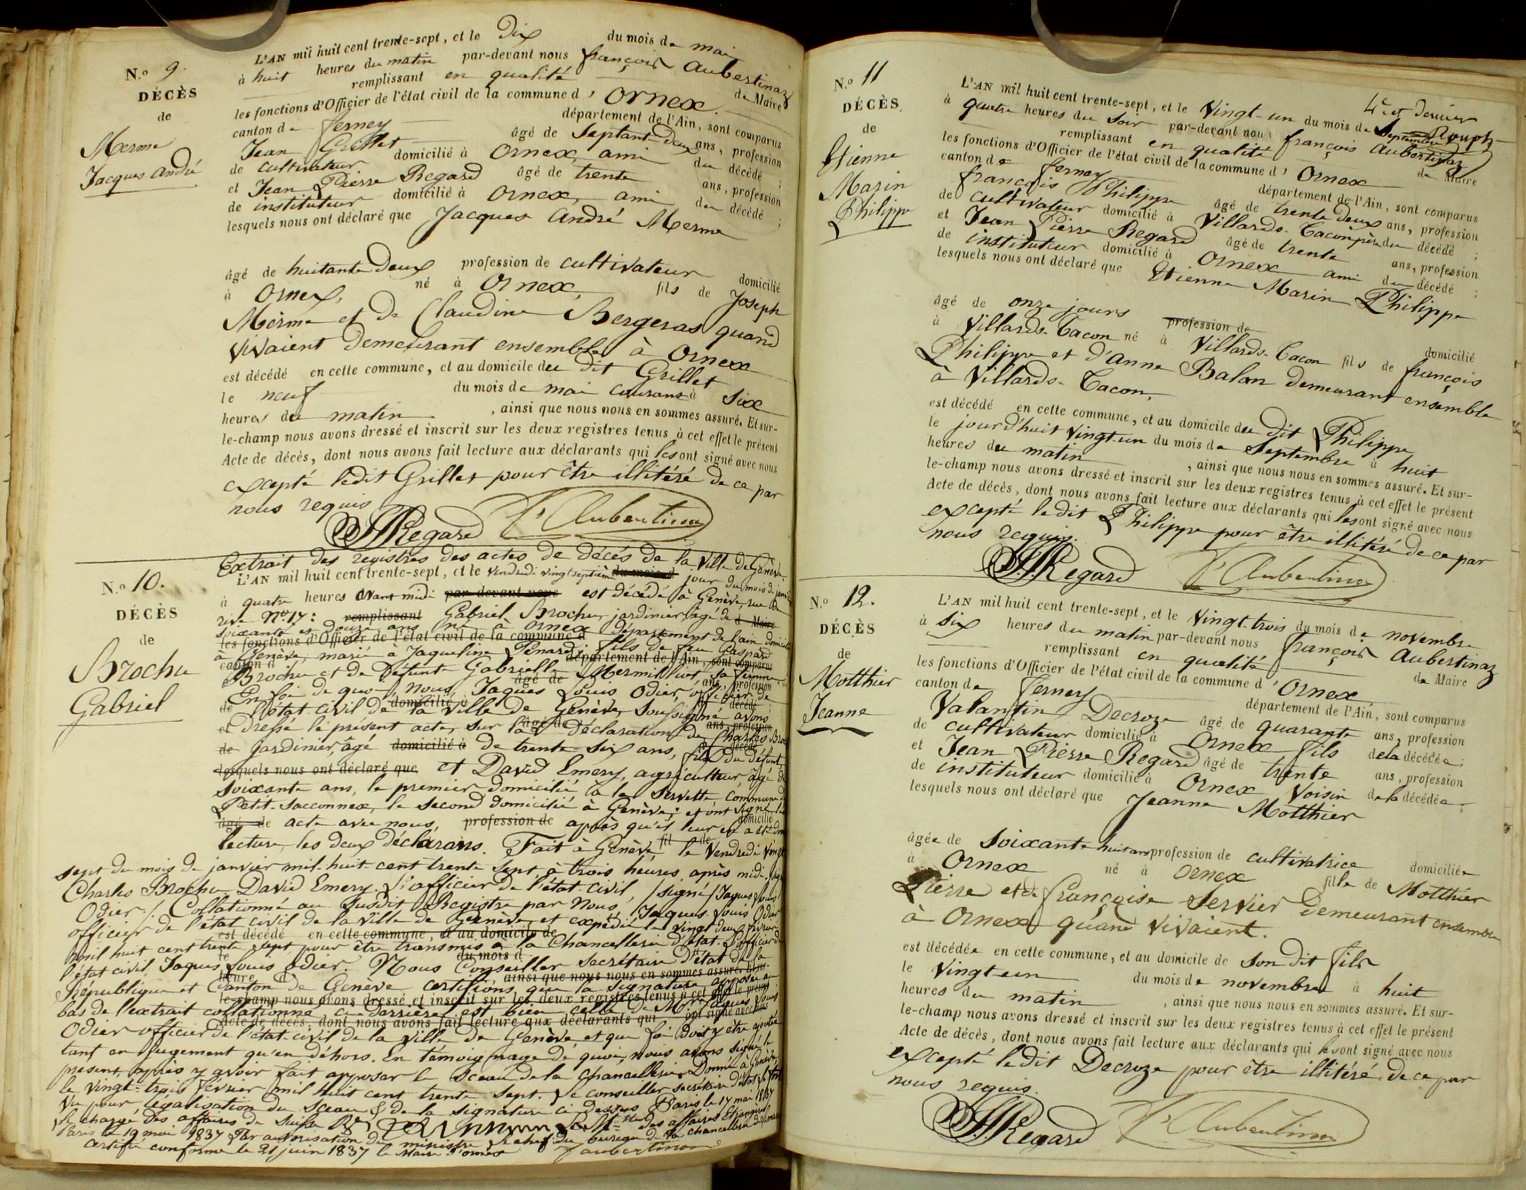 N.o 9.
DÉCÈS
de
Merme
Jacques André
L'AN mil huit cent trente-sept, et le Dix du mois de mai
à huit heures du matin par-devant nous françois Aubertinaz
remplissant en qualité de Maire
les fonctions d'Officier de l'état civil de la commune d' Ornex
canton de ferney département de l'Ain, sont comparus
Jean Grillet âgé de Septante Deux ans, profession
de cultivateur domicilié à Ornex, ami du décédé ;
et Jean Pierre Regard âgé de trente ans, profession
de instituteur domicilié à Ornex, ami du décédé ;
lesquels nous ont déclaré que Jacques André Merme
âgé de huitante Deux profession de cultivateur domicilié
à Ornex, né à Ornex, fils de Joseph
Merme et de Claudine Bergeras quand
vivaient demeurant ensemble à Ornex
est décédé en cette commune, et au domicile du dit Grillet
le neuf du mois de mai courant à six
heures du matin, ainsi que nous nous en sommes assuré. Et sur-
le-champ nous avons dressé et inscrit sur les deux registres tenus à cet effet le présent
Acte de décès, dont nous avons fait lecture aux déclarants qui les ont signé avec nous
excepté ledit Grillet pour être illitéré de ce par
nous requis.
JPRegard fs Aubertinaz
N.o 10.
DÉCÈS
de
Brochu
Gabriel
Extrait des registres des actes de décès de la Ville de Genève
L'AN mil huit cent trente-sept, et le Vendredi vingt septième du mois d jour du mois de janvier
à quatre heures avant midi par-devant nous est décédé à Genève, rue
rive No 17: remplissant Gabriel Brochu, jardinier, âgé de d Maire
soixante et douze ans né à Ornex Département de l'ain domicilié
les fonctions d'Officier de l'état civil de la commune d
à Genève, marié à Jaqueline Penard; fils de feu Gaspard
canton d département de l'Ain, sont comparus
Brochu et de Défunt Gabrielle Mermillod, sa femme
âgé de ans, profession
En foi de quoi, nous, Jaques Louis Odier, officier de
de domicilié à décédé
l'état civil de la Ville de Genève, soussigné avons
et âgé de ans, profession
Dressé le présent acte, sur la Déclaration de Charles Brochu
de jardinier, âgé domicilié à de trente six ans, fils du défunt
lesquels nous ont déclaré que et David Emery, agriculteur âgé de
soixante ans, le premier domicilié à la Servette, commune du
Petit-Sacconnex, le second domicilié à Genève; et ont signé le
âgé de acte avec nous, profession de après qu'il leur en a été donné domicilié
lecture, les deux déclarans. Fait à Genève fil de le Vendredi vingt
sept du mois de janvier mil huit cent trente sept à trois heures après midi. signé
Charles Brochu, David Emery. L'officier de l'état civil /signé/ Jaques Louis
Odier/. Collationné au susdit Registre par nous, Jaques Louis Odier
officier de l'état civil de la Ville de Genève, et expédié le vingt deux février
est décédé en cette commune, et au domicile de
mil huit cent trente sept pour être transmis à la Chancellerie d'état. L'officier de
le du mois d
l'état civil, Jaques Louis Odier. Nous Conseiller secrétaire d'état de la
heure d ainsi que nous nous en sommes assuré. Et sur-
République et Canton de Genève certifions que la signature apposée au
le-champ nous avons dressé et inscrit sur les deux registres tenus à cet effet le présent
bas de l'extrait collationné ci-derrière est bien celle de Mr Jaques Louis
Acte de décès, dont nous avons fait lecture aux déclarants qui ont signé avec nous
Odier officier de l'état-civil de la Ville de Genève et que foi doit y être ajoutée
tant en jugement qu'en dehors. En témoignage de quoi, nous avons signé le
présent après y avoir fait apposer le sceau de la Chancellerie. Donné à Genève
le vingt-trois février mil huit cent trente sept. Le conseiller secrétaire d'état
Vu pour légalisation du sceau & de la signature ci dessus Paris le 17 mai 1837
Le chargé des affaires de Suisse
Paris le 19 mai 1837 Par autorisation du ministre Le chef du bureau de la chancellerie
Certifié conforme le 21 juin 1837 le Maire d'Ornex faubertinaz
N.o 11
DÉCÈS
de
Etienne
Marin
Philippe
4e et Dernier
L'AN mil huit cent trente-sept, et le Vingt-un du mois de Septembre
à quatre heures du soir par-devant nous françois Aubertinaz
remplissant en qualité de Maire
les fonctions d'Officier de l'état civil de la commune d' Ornex
canton de ferney département de l'Ain, sont comparus
françois Philippe âgé de trente deux ans, profession
de cultivateur domicilié à Villards-Tacon père du décédé ;
et Jean Pierre Regard âgé de trente ans, profession
de instituteur domicilié à Ornex ami du décédé ;
lesquels nous ont déclaré que Etienne Marin Philippe
âgé de onze jours profession de domicilié
à Villards-Tacon né à Villards-Tacon fils de françois
Philippe et d'anne Balan demeurant ensemble
à Villards-Tacon,
est décédé en cette commune, et au domicile du dit Philippe
le jourd'huit vingt un du mois de Septembre à huit
heures du matin, ainsi que nous nous en sommes assuré. Et sur-
le-champ nous avons dressé et inscrit sur les deux registres tenus à cet effet le présent
Acte de décès, dont nous avons fait lecture aux déclarants qui les ont signé avec nous
excepté ledit Philippe pour être illitéré de ce par
nous requis.
JPRegard fs Aubertinaz
N.o 12.
DÉCÈS
de
Motthier
Jeanne
L'AN mil huit cent trente-sept, et le Vingt trois du mois de novembre
à six heures du matin par-devant nous françois Aubertinaz
remplissant en qualité de Maire
les fonctions d'Officier de l'état civil de la commune d' Ornex
canton de ferney département de l'Ain, sont comparus
Valantin Decroze âgé de quarante ans, profession
de cultivateur domicilié à Ornex fils de la décédée ;
et Jean Pierre Regard âgé de trente ans, profession
de instituteur domicilié à Ornex Voisin de la décédée ;
lesquels nous ont déclaré que Jeanne Motthier
âgée de Soixante huit ans profession de cultivatrice domiciliée
à Ornex né à ornex fille de Motthier
Pierre et de françoise Servier Demeurant ensemble
à Ornex quand vivaient.
est décédée en cette commune, et au domicile de son dit fils
le Vingt un du mois de novembre à huit
heures du matin, ainsi que nous nous en sommes assuré. Et sur-
le-champ nous avons dressé et inscrit sur les deux registres tenus à cet effet le présent
Acte de décès, dont nous avons fait lecture aux déclarants qui l'ont signé avec nous
excepté ledit Decroze pour être illitéré de ce par
nous requis
JPRegard fs Aubertinaz